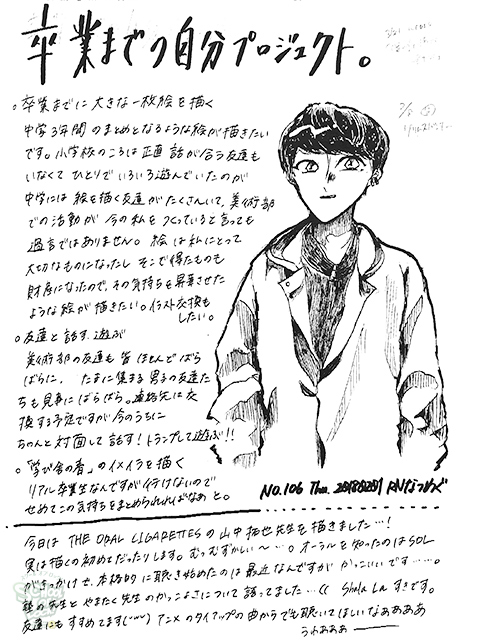 卒業までの自分プロジェクト。
○卒業までに大きな一枚絵を描く
中学3年間のまとめとなるような絵が描きたい
です。小学校のころは正直 話が合う友達も
いなくて ひとりでいろいろ遊んでいたのが
中学には 絵を描く友達がたくさんいて、美術部
での活動が 今の私をつくっていると言っても
過言ではありません。 絵は私にとって
大切なものになったし そこで得たものも
財産になったので、その気持ちも昇華させた
ような絵が描きたい。イラスト交換も
したい。
○友達と話す、遊ぶ
美術部の友達も皆 ほとんどばら
ばらに、 たまに集まる男子の友達た
ちも見事にばらばら。連絡先は交
換する予定ですが今のうちに
ちゃんと対面して話す!トランプして遊ぶ!!
○「学び舎の春」のイメイラを描く
リアル卒業生なんですが行けないので
せめてこの気持ちをまとめられればなぁ と。
NO.106 Thu. 20180201 RNなつめぐ
今日は THE ORAL CIGARETTESの山中拓也先生を描きました…!
実は描くの初めてだったりします。むっずかしい〜…。オーラルを知ったのはSOL
がきっかけで、本格的に聴き始めたのは最近なんですがかっこいいです……。
塾の先生と やまたく先生のかっこよさについて語ってました…(( Shala Laすきです。
友達にもすすめてます(˘ω˘) アニメのタイアップの曲からでも聴いてほしいなああああ
うわあああ